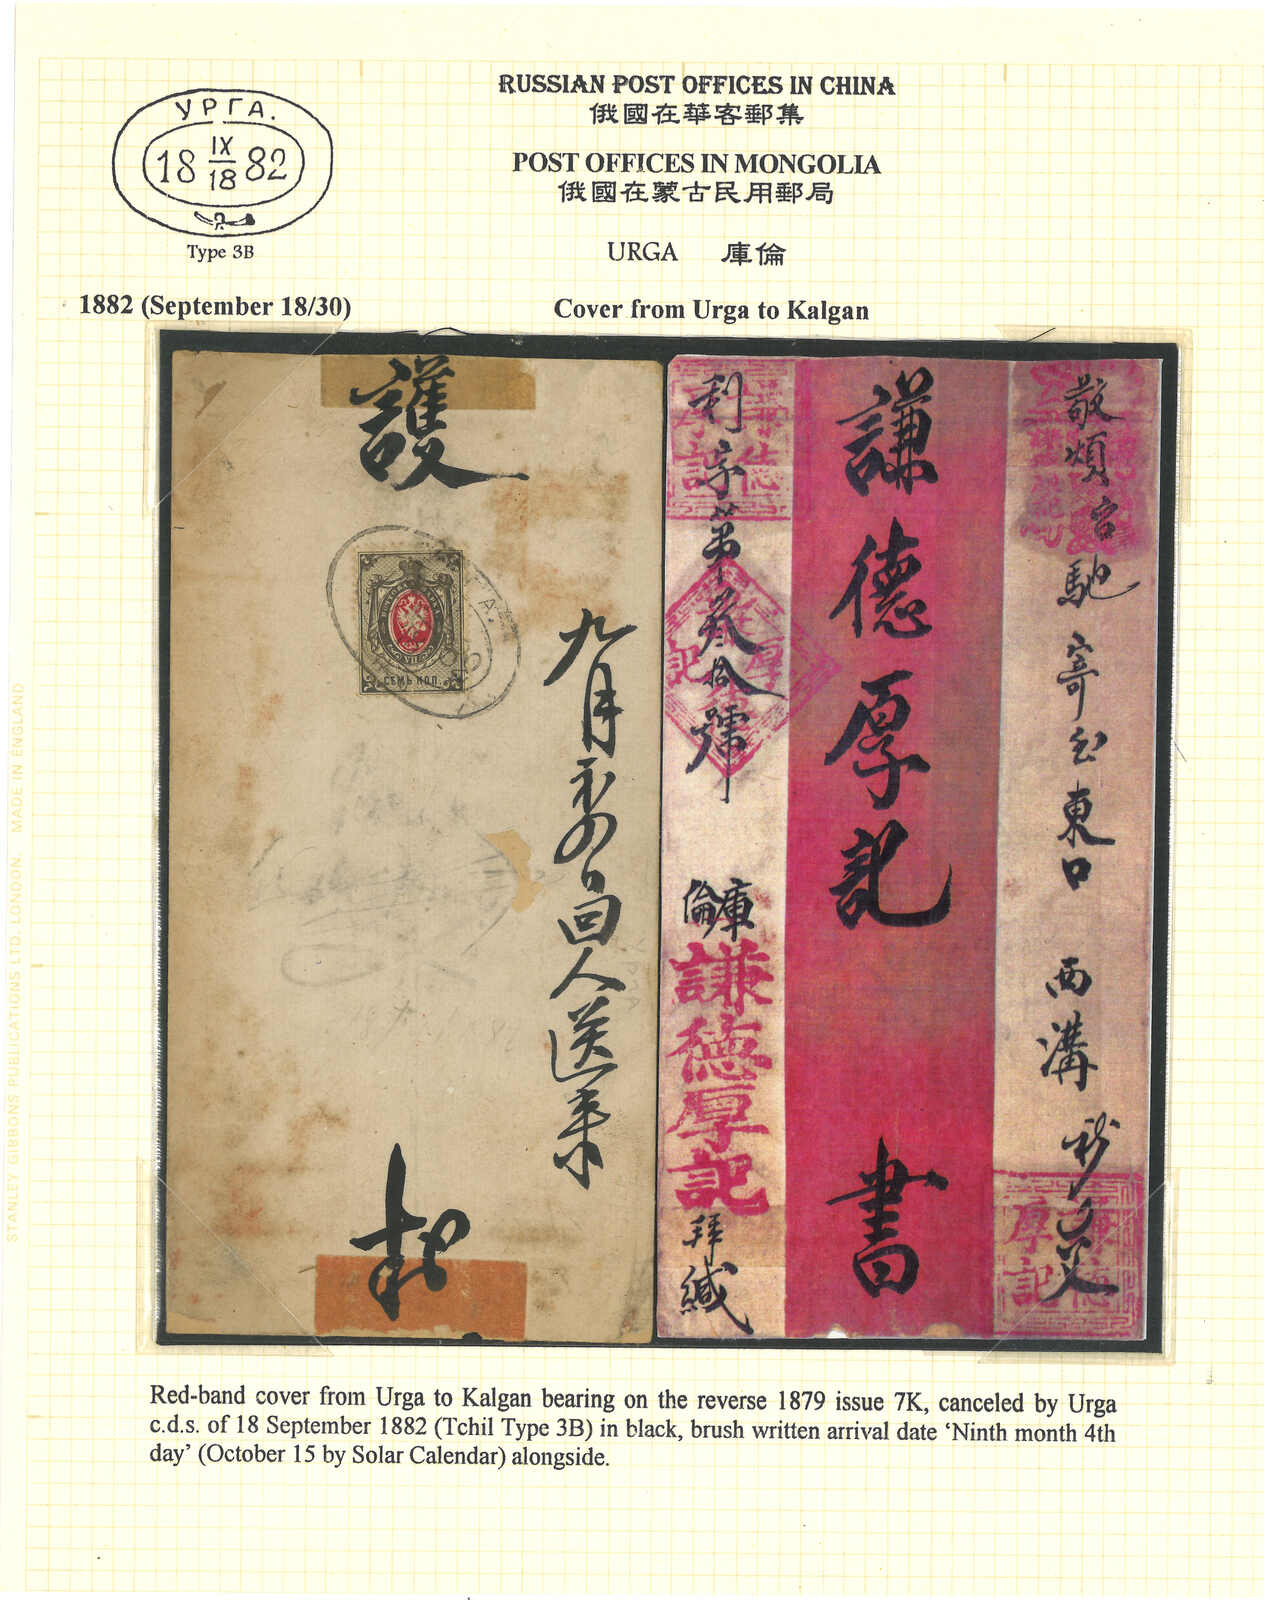 RUSSIAN POST OFFICES IN CHINA
俄國在華客郵集
POST OFFICES IN MONGOLIA
俄國在蒙古民用郵局
URGA 庫倫
УРГА.
18 IX/18 82
Type 3B
1882 (September 18/30)
Cover from Urga to Kalgan
敬煩台馳寄至東口 西溝
謙德厚記 書
利字第叁拾號
庫倫
謙德厚記
拜緘
謙德厚記
護
九月初四日回人送來
СЕМЬ КОП.
Red-band cover from Urga to Kalgan bearing on the reverse 1879 issue 7K, canceled by Urga
c.d.s. of 18 September 1882 (Tchil Type 3B) in black, brush written arrival date ‘Ninth month 4th
day’ (October 15 by Solar Calendar) alongside.
STANLEY GIBBONS PUBLICATIONS LTD. LONDON. MADE IN ENGLAND